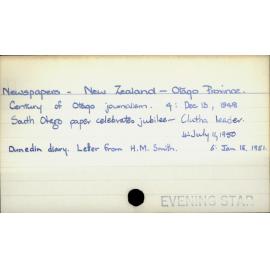 Newspapers - New Zealand - Otago Province.
Century of Otago journalism. 4: Dec 13, 1948
South Otago paper celebrates jubilee - Clutha Leader.
4: July 11, 1950
Dunedin diary. Letter from H.M. Smith. 6: Jan 18, 1951.
EVENING STAR